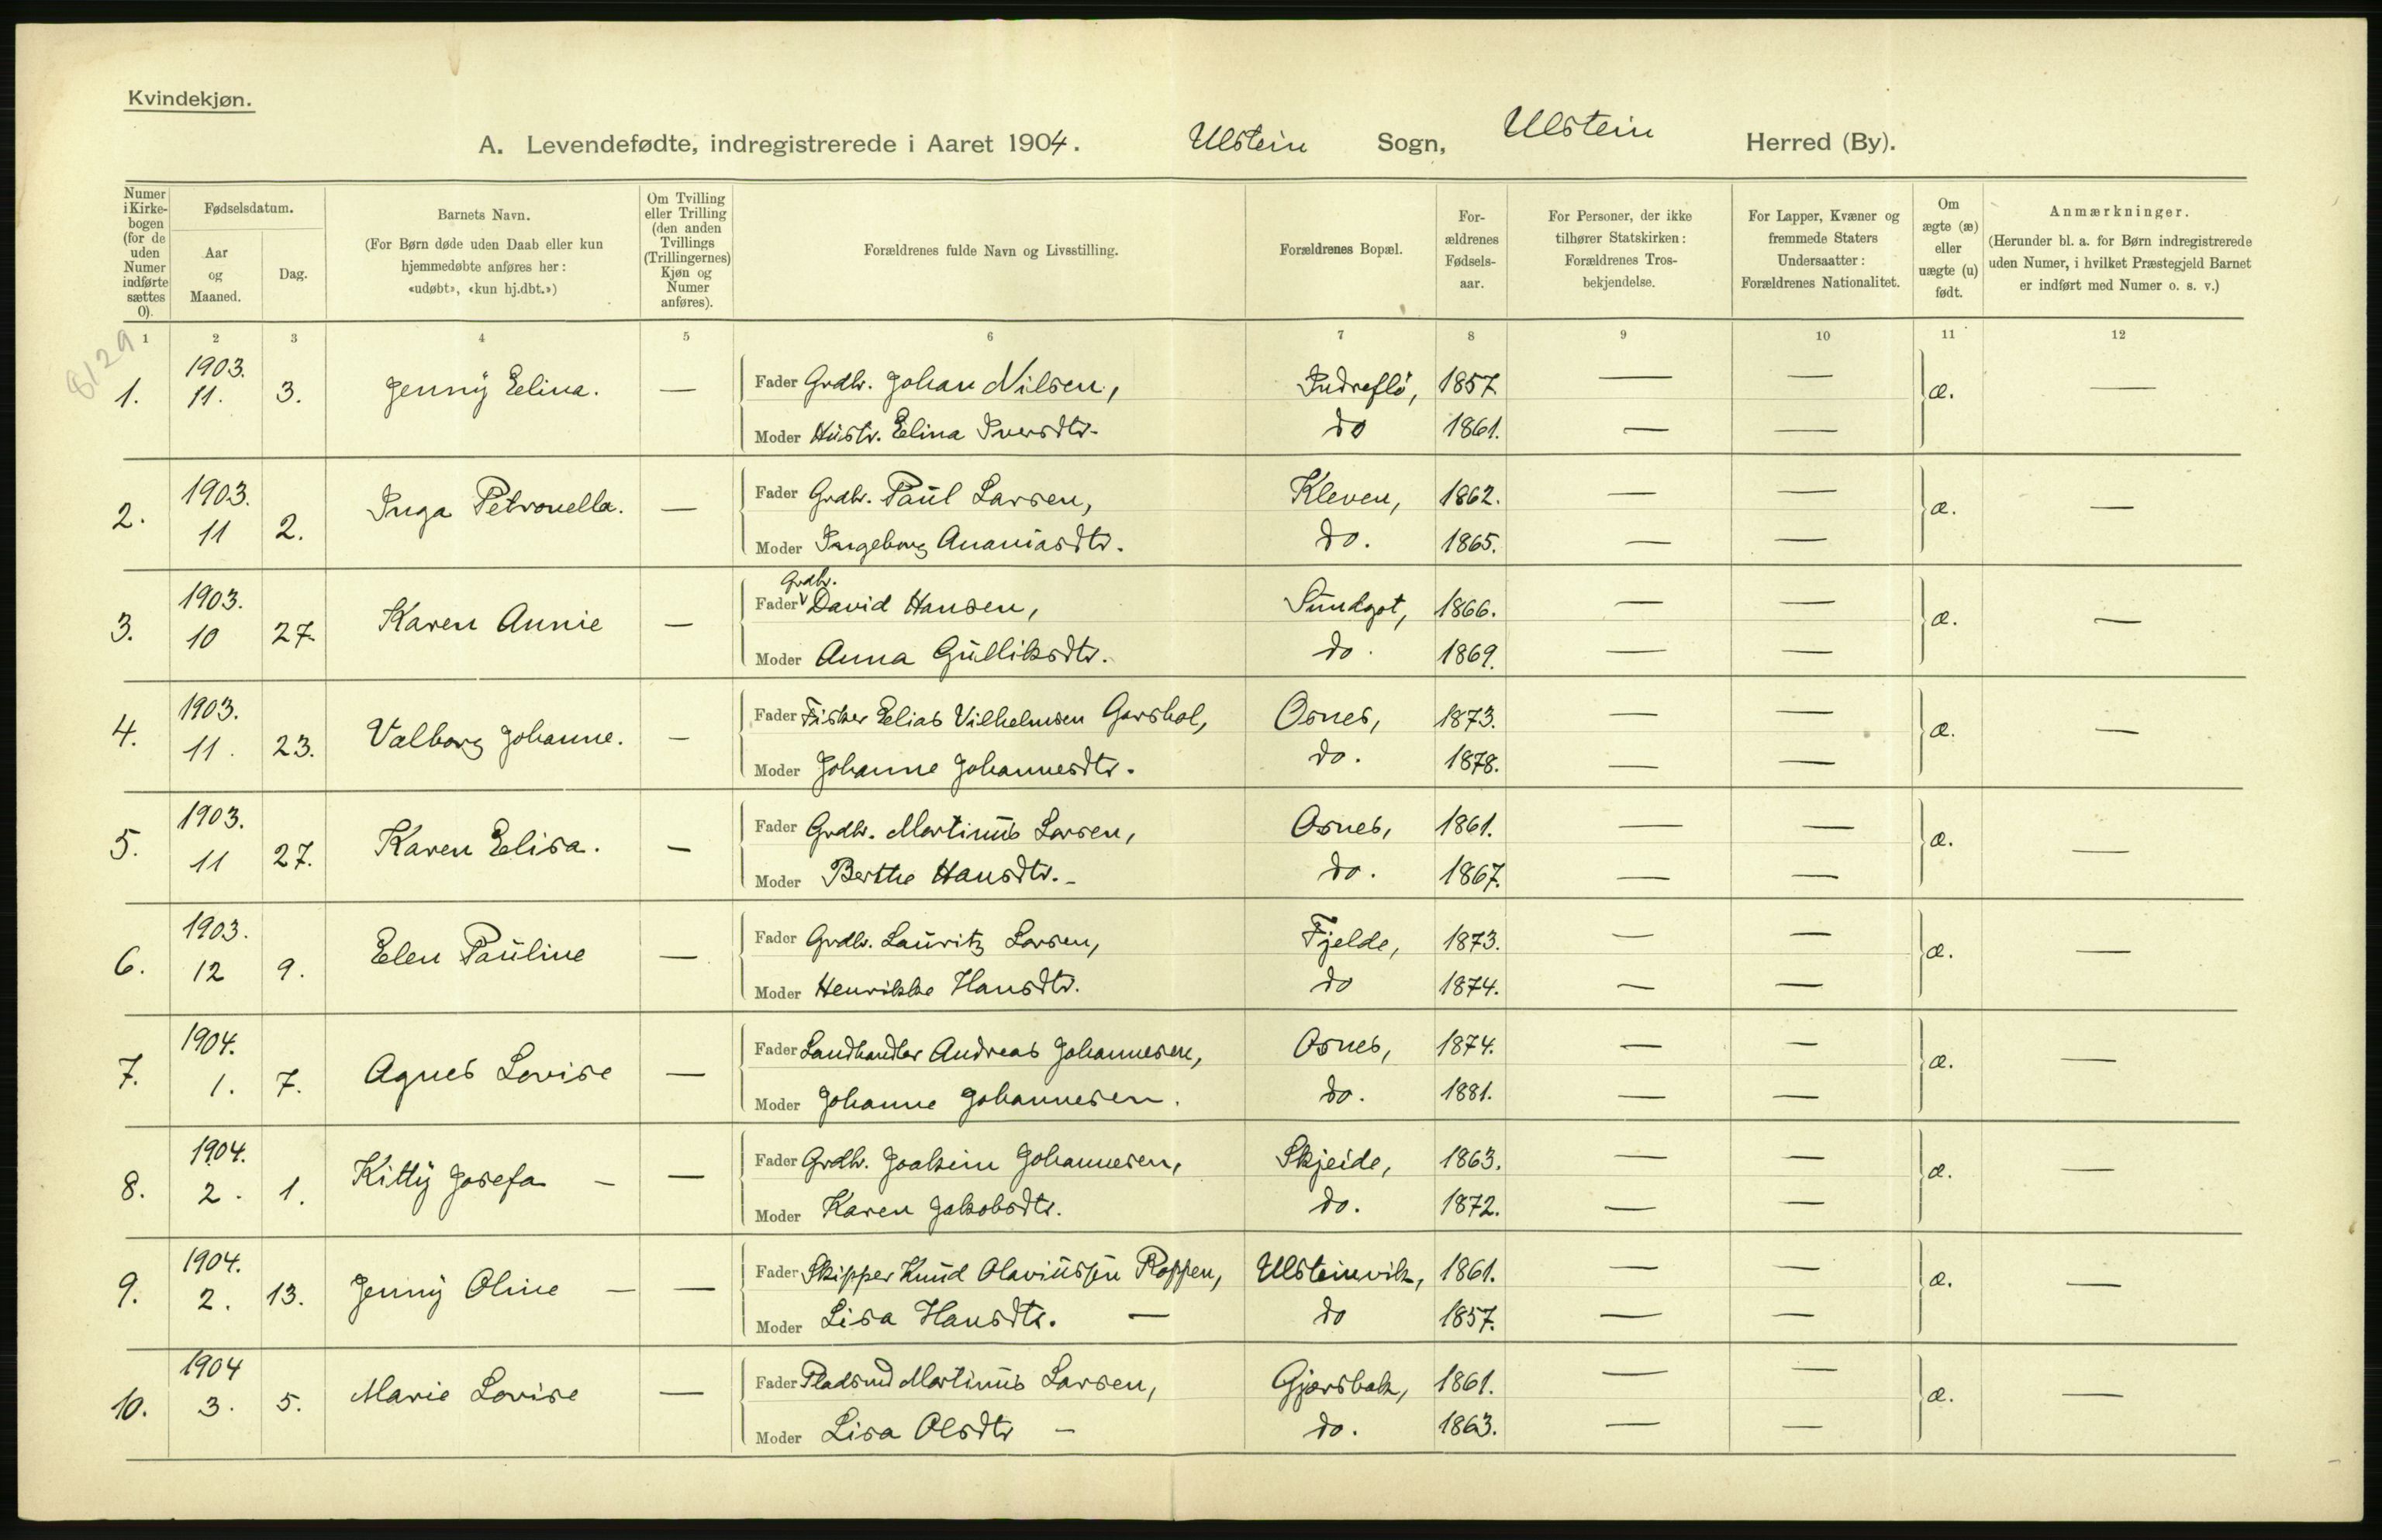 Kvindekjøn.
A. Levendefødte, indregistrerede i Aaret 1904. Ulstein Sogn, Ulstein Herred (By).
Numer i Kirkebogen (for de uden Numer indførte sættes 0).
Fødselsdatum.
Aar og Maaned.
Dag.
Barnets Navn.
(For Børn døde uden Daab eller kun hjemmedøbte anføres her: «udøbt», «kun hj.dbt.»)
Om Tvilling eller Trilling (den anden Tvillings (Trillingernes) Kjøn og Numer anføres).
Forældrenes fulde Navn og Livsstilling.
Forældrenes Bopæl.
Forældrenes Fødselsaar.
For Personer, der ikke tilhører Statskirken: Forældrenes Trosbekjendelse.
For Lapper, Kvæner og fremmede Staters Undersaatter: Forældrenes Nationalitet.
Om ægte (æ) eller uægte (u) født.
Anmærkninger.
(Herunder bl. a. for Børn indregistrerede uden Numer, i hvilket Præstegjeld Barnet er indført med Numer o. s. v.)
1 2 3 4 5 6 7 8 9 10 11 12
8129
1. 1903. 11. 3. Jenny Elina. — Fader Grdbr. Johan Nilsen, Indreflö, 1857 — — æ. —
Moder Hustr. Elina Iversdtr. do 1861. — —
2. 1903. 11 2. Inga Petronella. — Fader Grdbr. Paul Larsen, Kleven, 1862. — — æ. —
Moder Ingeborg Ananiasdtr. do. 1865. — —
3. 1903. 10 27. Karen Annie — Fader Grdbr. David Hansen, Sundgot, 1866. — — æ. —
Moder Anna Gulliksdtr. do. 1869. — —
4. 1903. 11. 23. Valborg Johanne. — Fader Fisker Elias Vilhelmsen Garshol, Osnes, 1873. — — æ. —
Moder Johanne Johannesdtr. do. 1878. — —
5. 1903. 11 27. Karen Elisa. — Fader Grdbr. Martinus Larsen, Osnes, 1861. — — æ. —
Moder Berthe Hansdtr. do. 1867. — —
6. 1903. 12 9. Elen Pauline — Fader Grdbr. Lauritz Larsen, Fjelde, 1873. — — æ. —
Moder Henrikke Hansdtr. do 1874. — —
7. 1904. 1. 7. Agnes Lovise — Fader Landhandler Andreas Johannesen, Osnes, 1874. — — æ. —
Moder Johanne Johannesen. do. 1881. — —
8. 1904. 2. 1. Kitty Josefa — — Fader Grdbr. Joakim Johannesen, Skjeide, 1863. — — æ. —
Moder Karen Jakobsdtr. do. 1872. — —
9. 1904. 2. 13. Jenny Oline — — Fader Skipper Knud Olaviussen Roppen, Ulsteinvik, 1861. — — æ. —
Moder Lisa Hansdtr. — do 1857. — —
10. 1904 3. 5. Marie Lovise — Fader Pladsmd Martinus Larsen, Gjørsbak, 1861. — — æ. —
Moder Lisa Olsdtr — do. 1863. — —